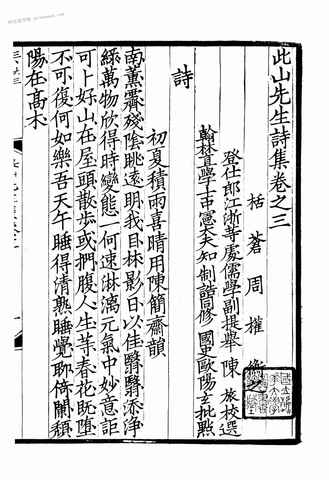 此山先生詩集卷之三
栝蒼周權衡之
登仕郎江浙等處儒學副提舉陳旅校選
翰林直學士中憲大夫知制誥同修國史歐陽玄批點
詩
初夏積雨喜晴用陳簡齋韻
南薰霽殘陰眺遠明我目林影日以佳翳翳添淨
綠萬物欣得時變態一何速淋漓元氣中妙意詎
可卜好山在屋頭散步或捫腹人生等春花旣墮
不可復何如樂吾天午睡得清熟睡覺聊倚闌頹
陽在高木